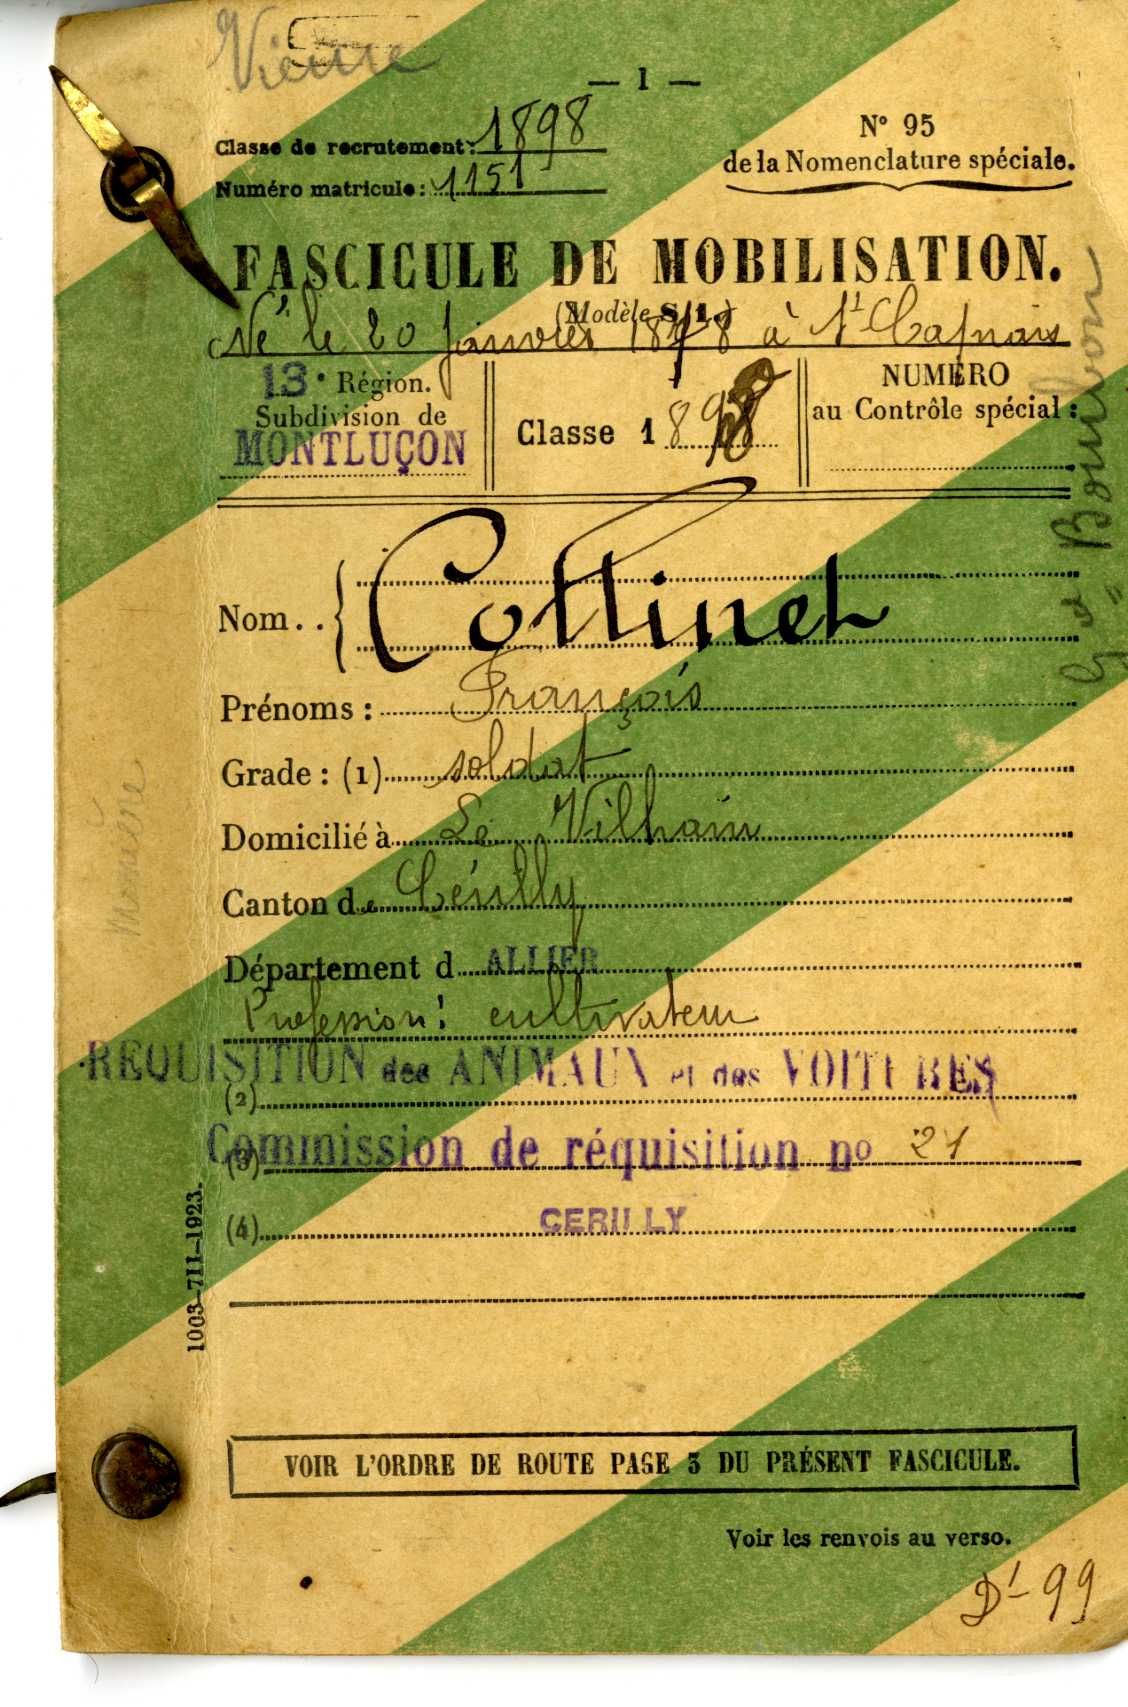 Vieure
— 1 —
Classe de recrutement: 1898
Numéro matricule: 1151
N° 95
de la Nomenclature spéciale.
FASCICULE DE MOBILISATION.
(Modèle S/1.)
Né le 20 Janvier 1878 à St Caprais
13e Région.
Subdivision de
MONTLUÇON
Classe 1898
NUMÉRO
au Contrôle spécial:
Nom.. Cottinet
Prénoms: François
Grade: (1) soldat
Domicilié à Le Vilhain
Canton de Cérilly
Département d ALLIER
Profession: cultivateur
REQUISITION des ANIMAUX et des VOITURES
(2)
Commission de réquisition no 21
(3)
(4) CERILLY
1003-711-1923.
VOIR L'ORDRE DE ROUTE PAGE 3 DU PRÉSENT FASCICULE.
Voir les renvois au verso.
Dt 99
Bourbon